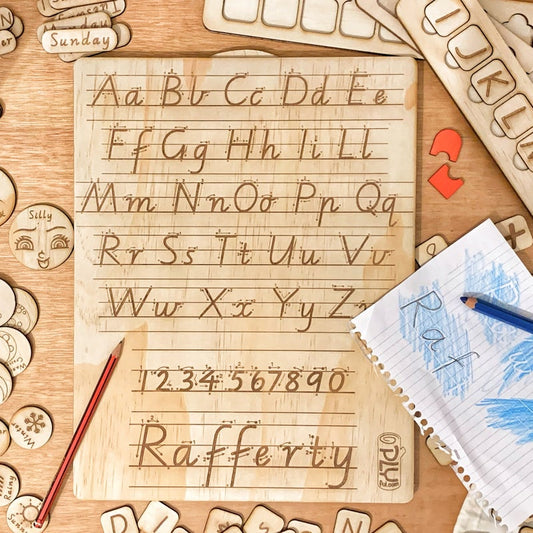 Sunday
Silly
Winter
Rainy
Aa Bb Cc Dd Ee
Ff Gg Hh Ii Ll
Mm Nn Oo Pp Qq
Rr Ss Tt Uu Vv
Ww Xx Yy Zz
1234567890
Rafferty
PLY
ful.com
I J K L
Raf
D P
N